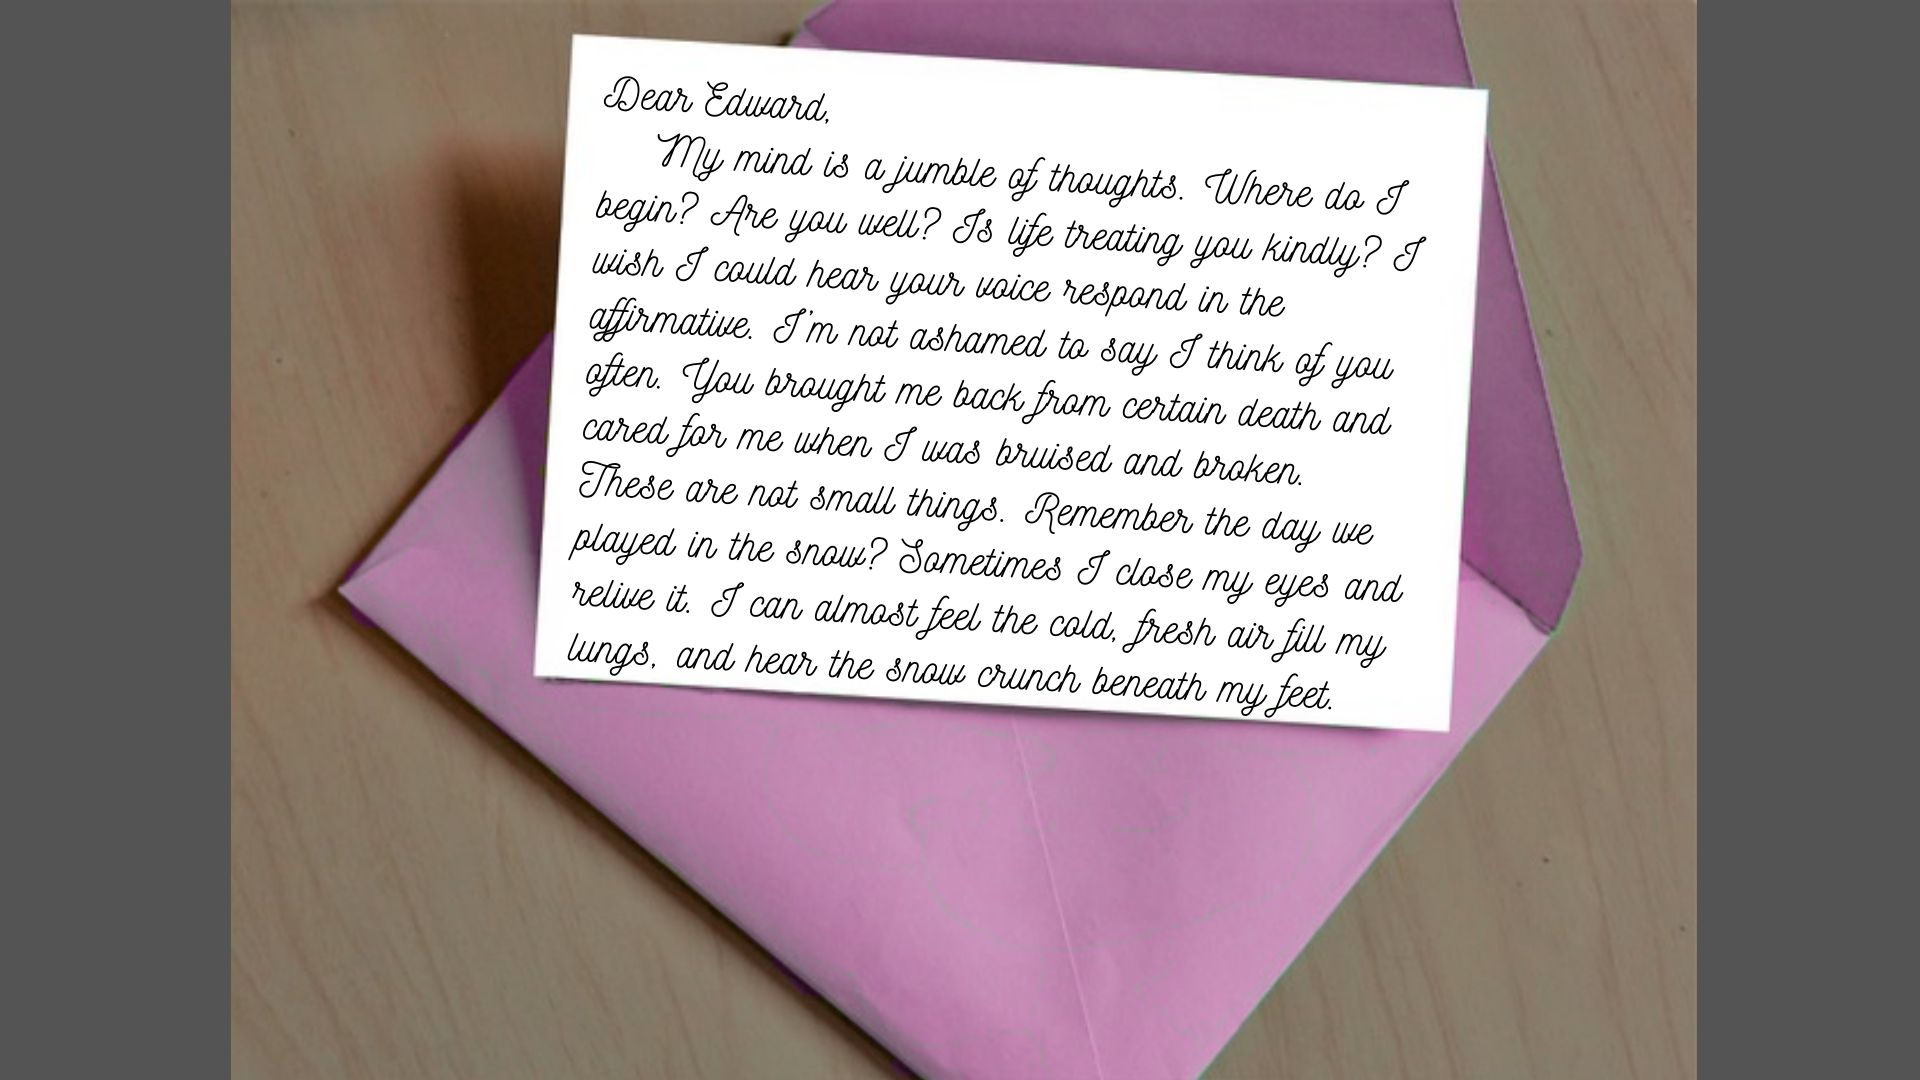 Dear Edward,
My mind is a jumble of thoughts. Where do I
begin? Are you well? Is life treating you kindly? I
wish I could hear your voice respond in the
affirmative. I'm not ashamed to say I think of you
often. You brought me back from certain death and
cared for me when I was bruised and broken.
These are not small things. Remember the day we
played in the snow? Sometimes I close my eyes and
relive it. I can almost feel the cold, fresh air fill my
lungs, and hear the snow crunch beneath my feet.